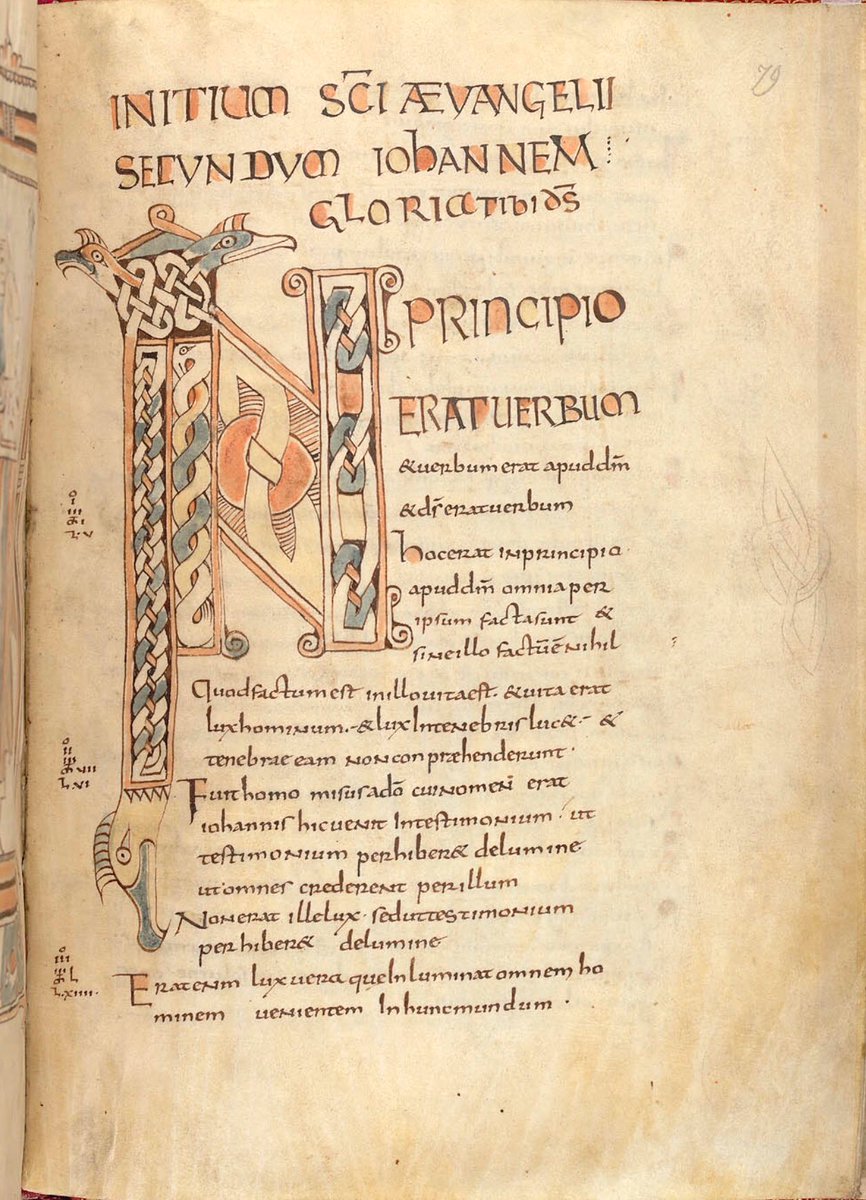 79
INITIUM SC̄I ÆVANGELII
SECVNDUM IOhANNEM
GLORIA TIBI DS̄
IN PRINCIPIO
ERAT UERBUM
& uerbum erat apud dm̄
& ds̄ erat uerbum
hoc erat in principio
apud dm̄ omnia per
ipsum facta sunt &
sine illo factū ē nihil
Quod factum est in illo uita est. & uita erat
lux hominum. & lux Intenebris luc& · &
tenebrae eam non conpræhenderunt ·
Fuit homo misus a dō cui nomen̄ erat
iohannis hic uenit Intestimonium · ut
testimonium perhiber& delumine
ut omnes crederent per illum
Non erat ille lux · sed ut testimonium
perhiber& delumine
Erat enim lux uera que Inluminat omnem ho
minem uenientem In hunc mundum ·